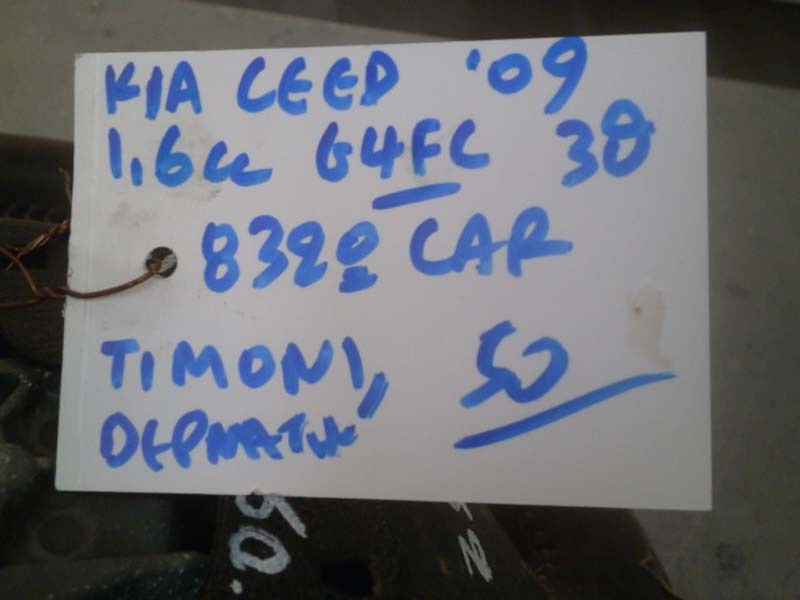 KIA CEED '09
1,6cc G4FC 38
8320 CAR
TIMONI,
50